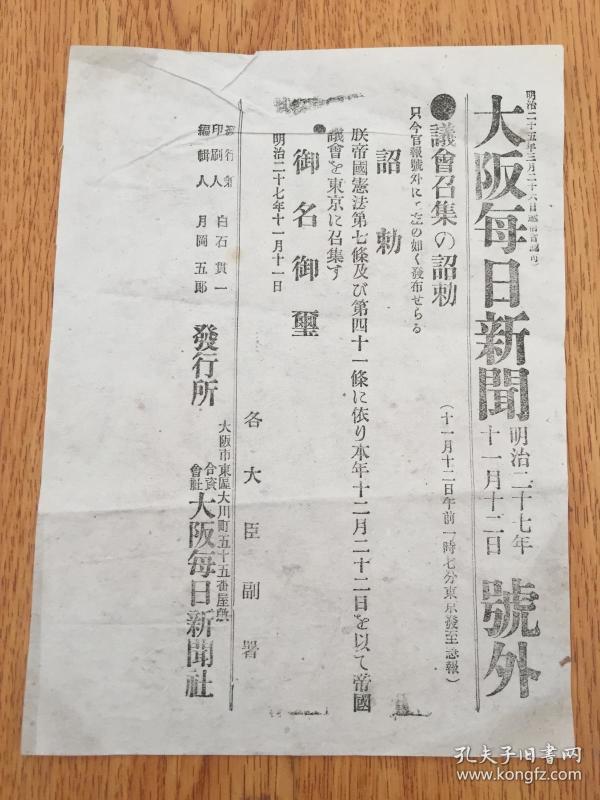 明治二十五年三月二十六日遞信省認可
大阪毎日新聞
明治二十七年
十一月十二日
號外
●議會召集の詔勅
(十一月十二日午前一時七分東京發至急報)
只今官報號外にて左の如く發布せらる
詔勅
朕帝國憲法第七條及び第四十一條に依り本年十二月二十二日を以て帝國
議會を東京に召集す
御名御璽
明治二十七年十一月十一日
各大臣副署
發行兼
印刷人 白石貫一
編輯人 月岡五郎
發行所
大阪市東區大川町五十五番屋敷
合資
會社
大阪毎日新聞社
孔夫子旧书网
www.kongfz.com